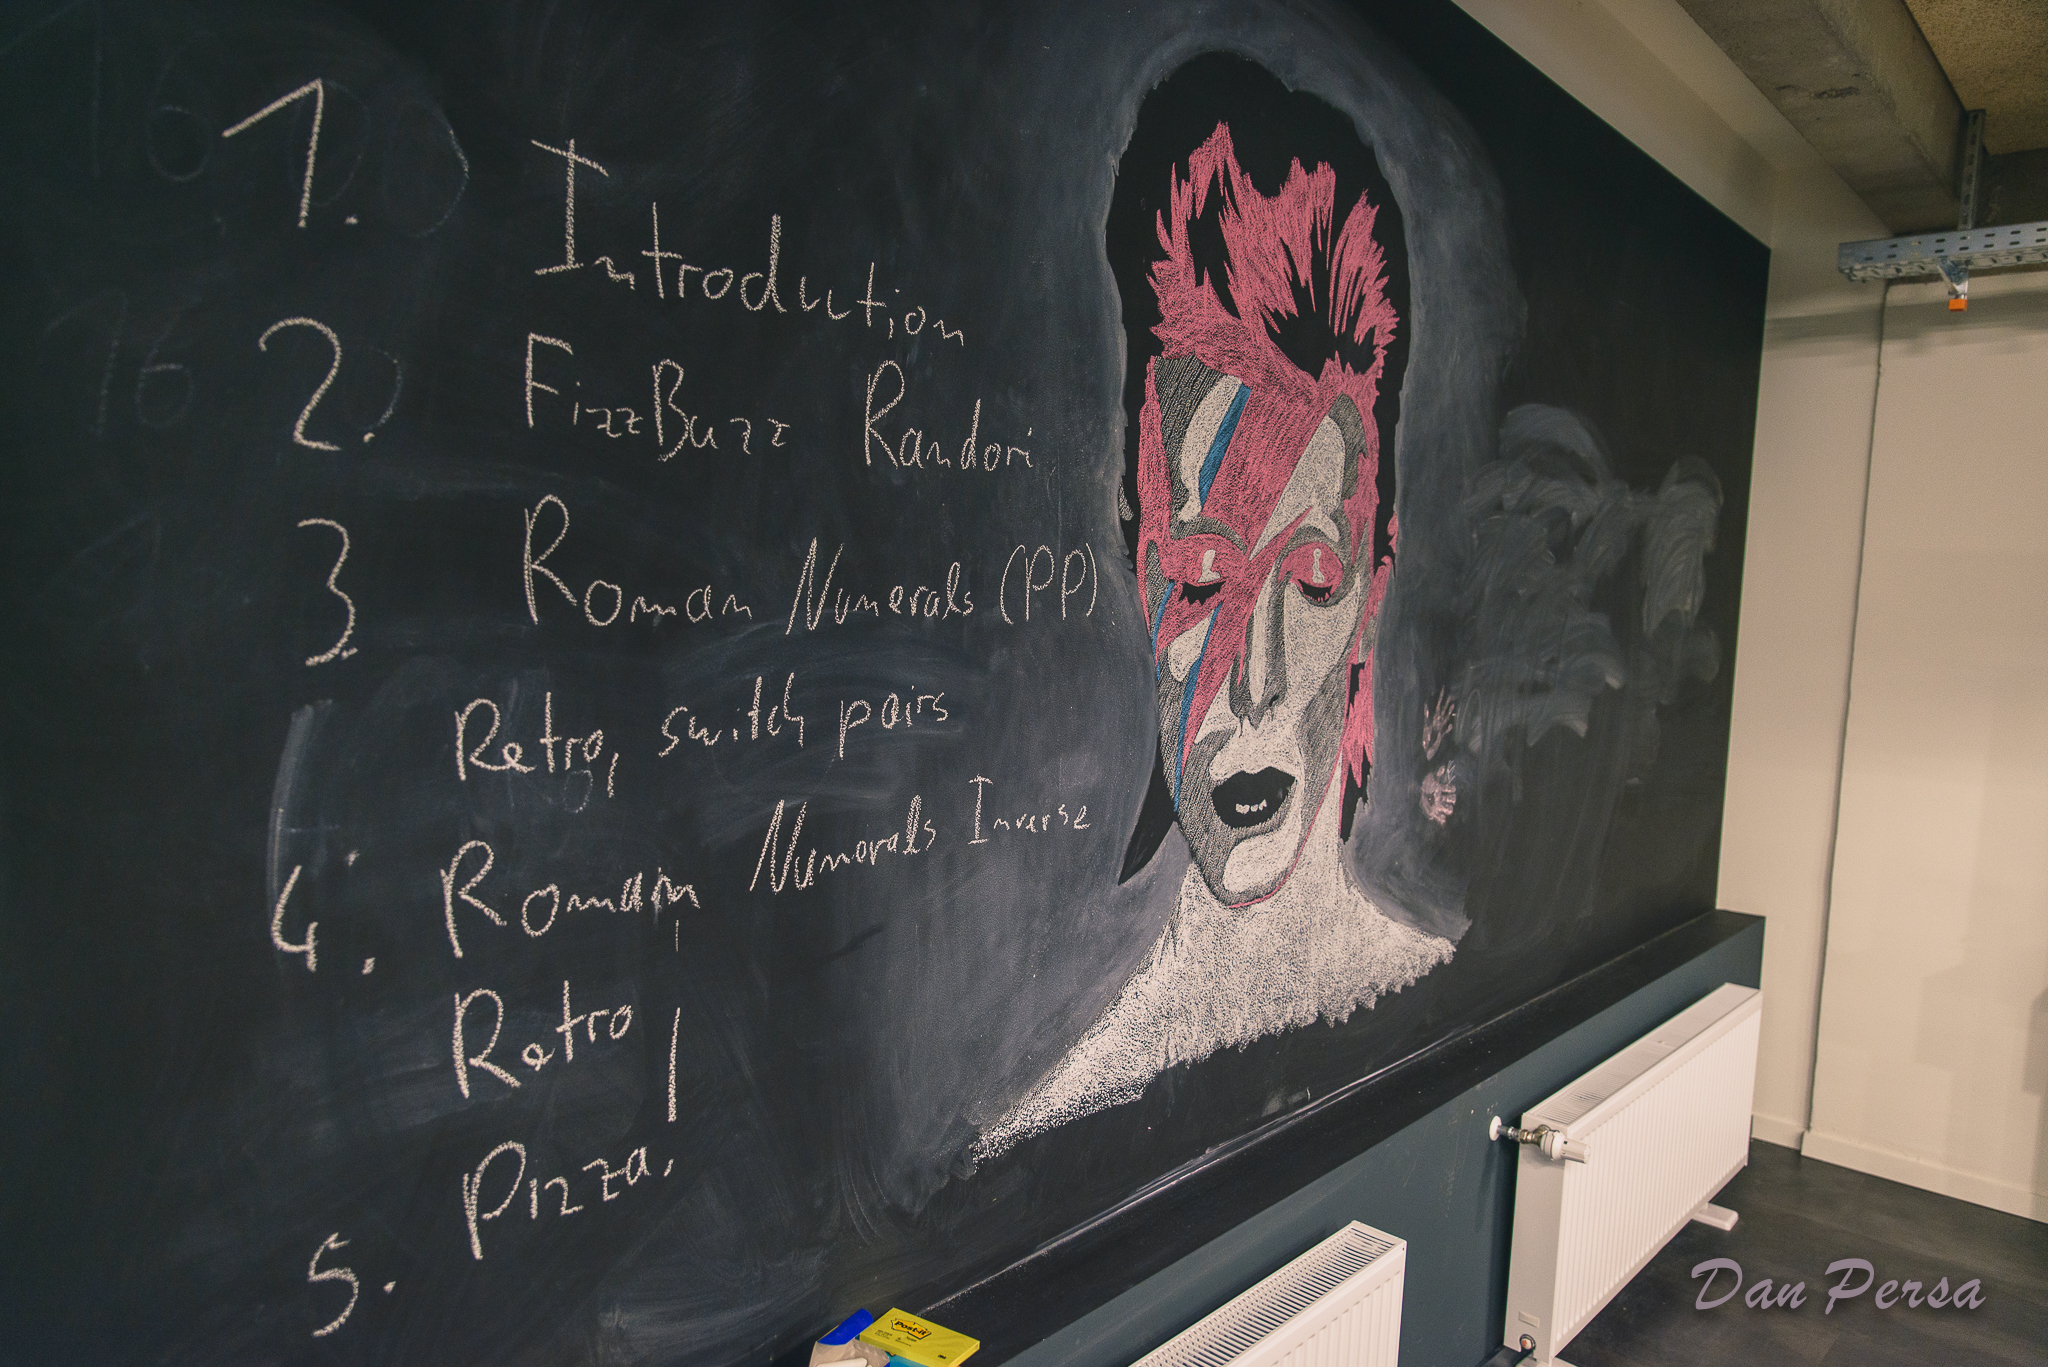 1. Introduction
2. FizzBuzz Randori
3. Roman Numerals (PP)
Retro, switch pairs
4. Roman Numerals Inverse
Retro
Pizza!
5.
Post-it
Dan Persa